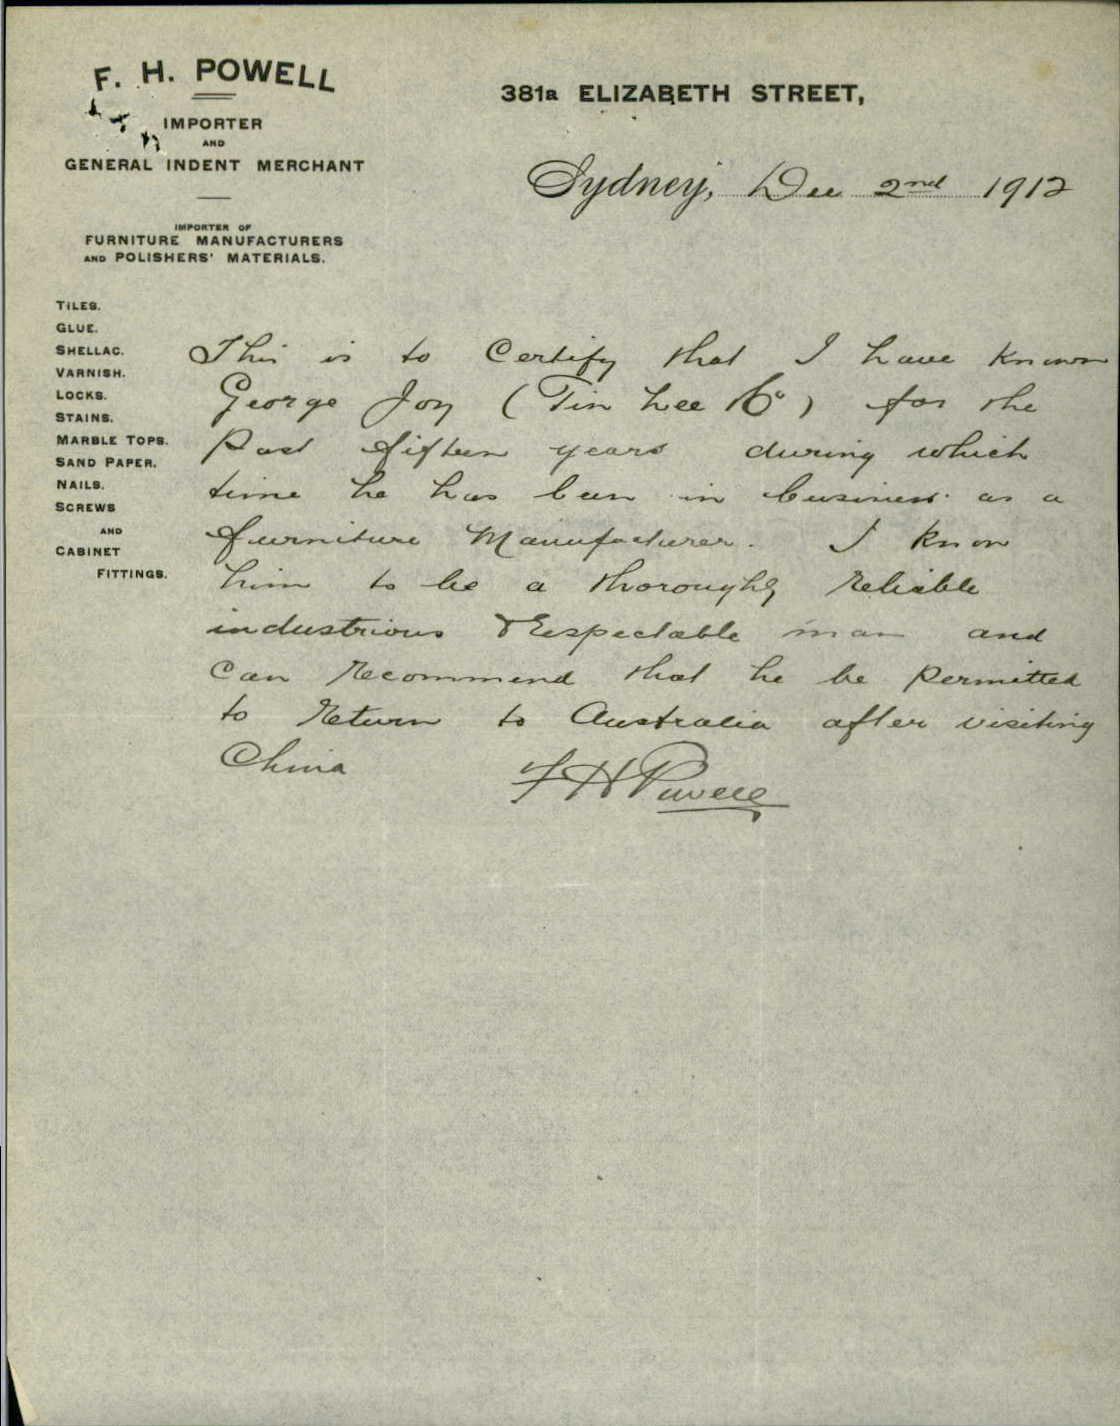 F. H. POWELL
IMPORTER
AND
GENERAL INDENT MERCHANT
IMPORTER OF
FURNITURE MANUFACTURERS
AND POLISHERS' MATERIALS.
TILES.
GLUE.
SHELLAC.
VARNISH.
LOCKS.
STAINS.
MARBLE TOPS.
SAND PAPER.
NAILS.
SCREWS
AND
CABINET
FITTINGS.
381a ELIZABETH STREET,
Sydney, Dec 2nd 1912
This is to Certify that I have known
George Joy (Tin Lee & Co) for the
Past fifteen years during which
time he has been in business as a
furniture Manufacturer. I know
him to be a thoroughly reliable
industrious & respectable man and
can recommend that he be permitted
to return to Australia after visiting
China
F H Powell